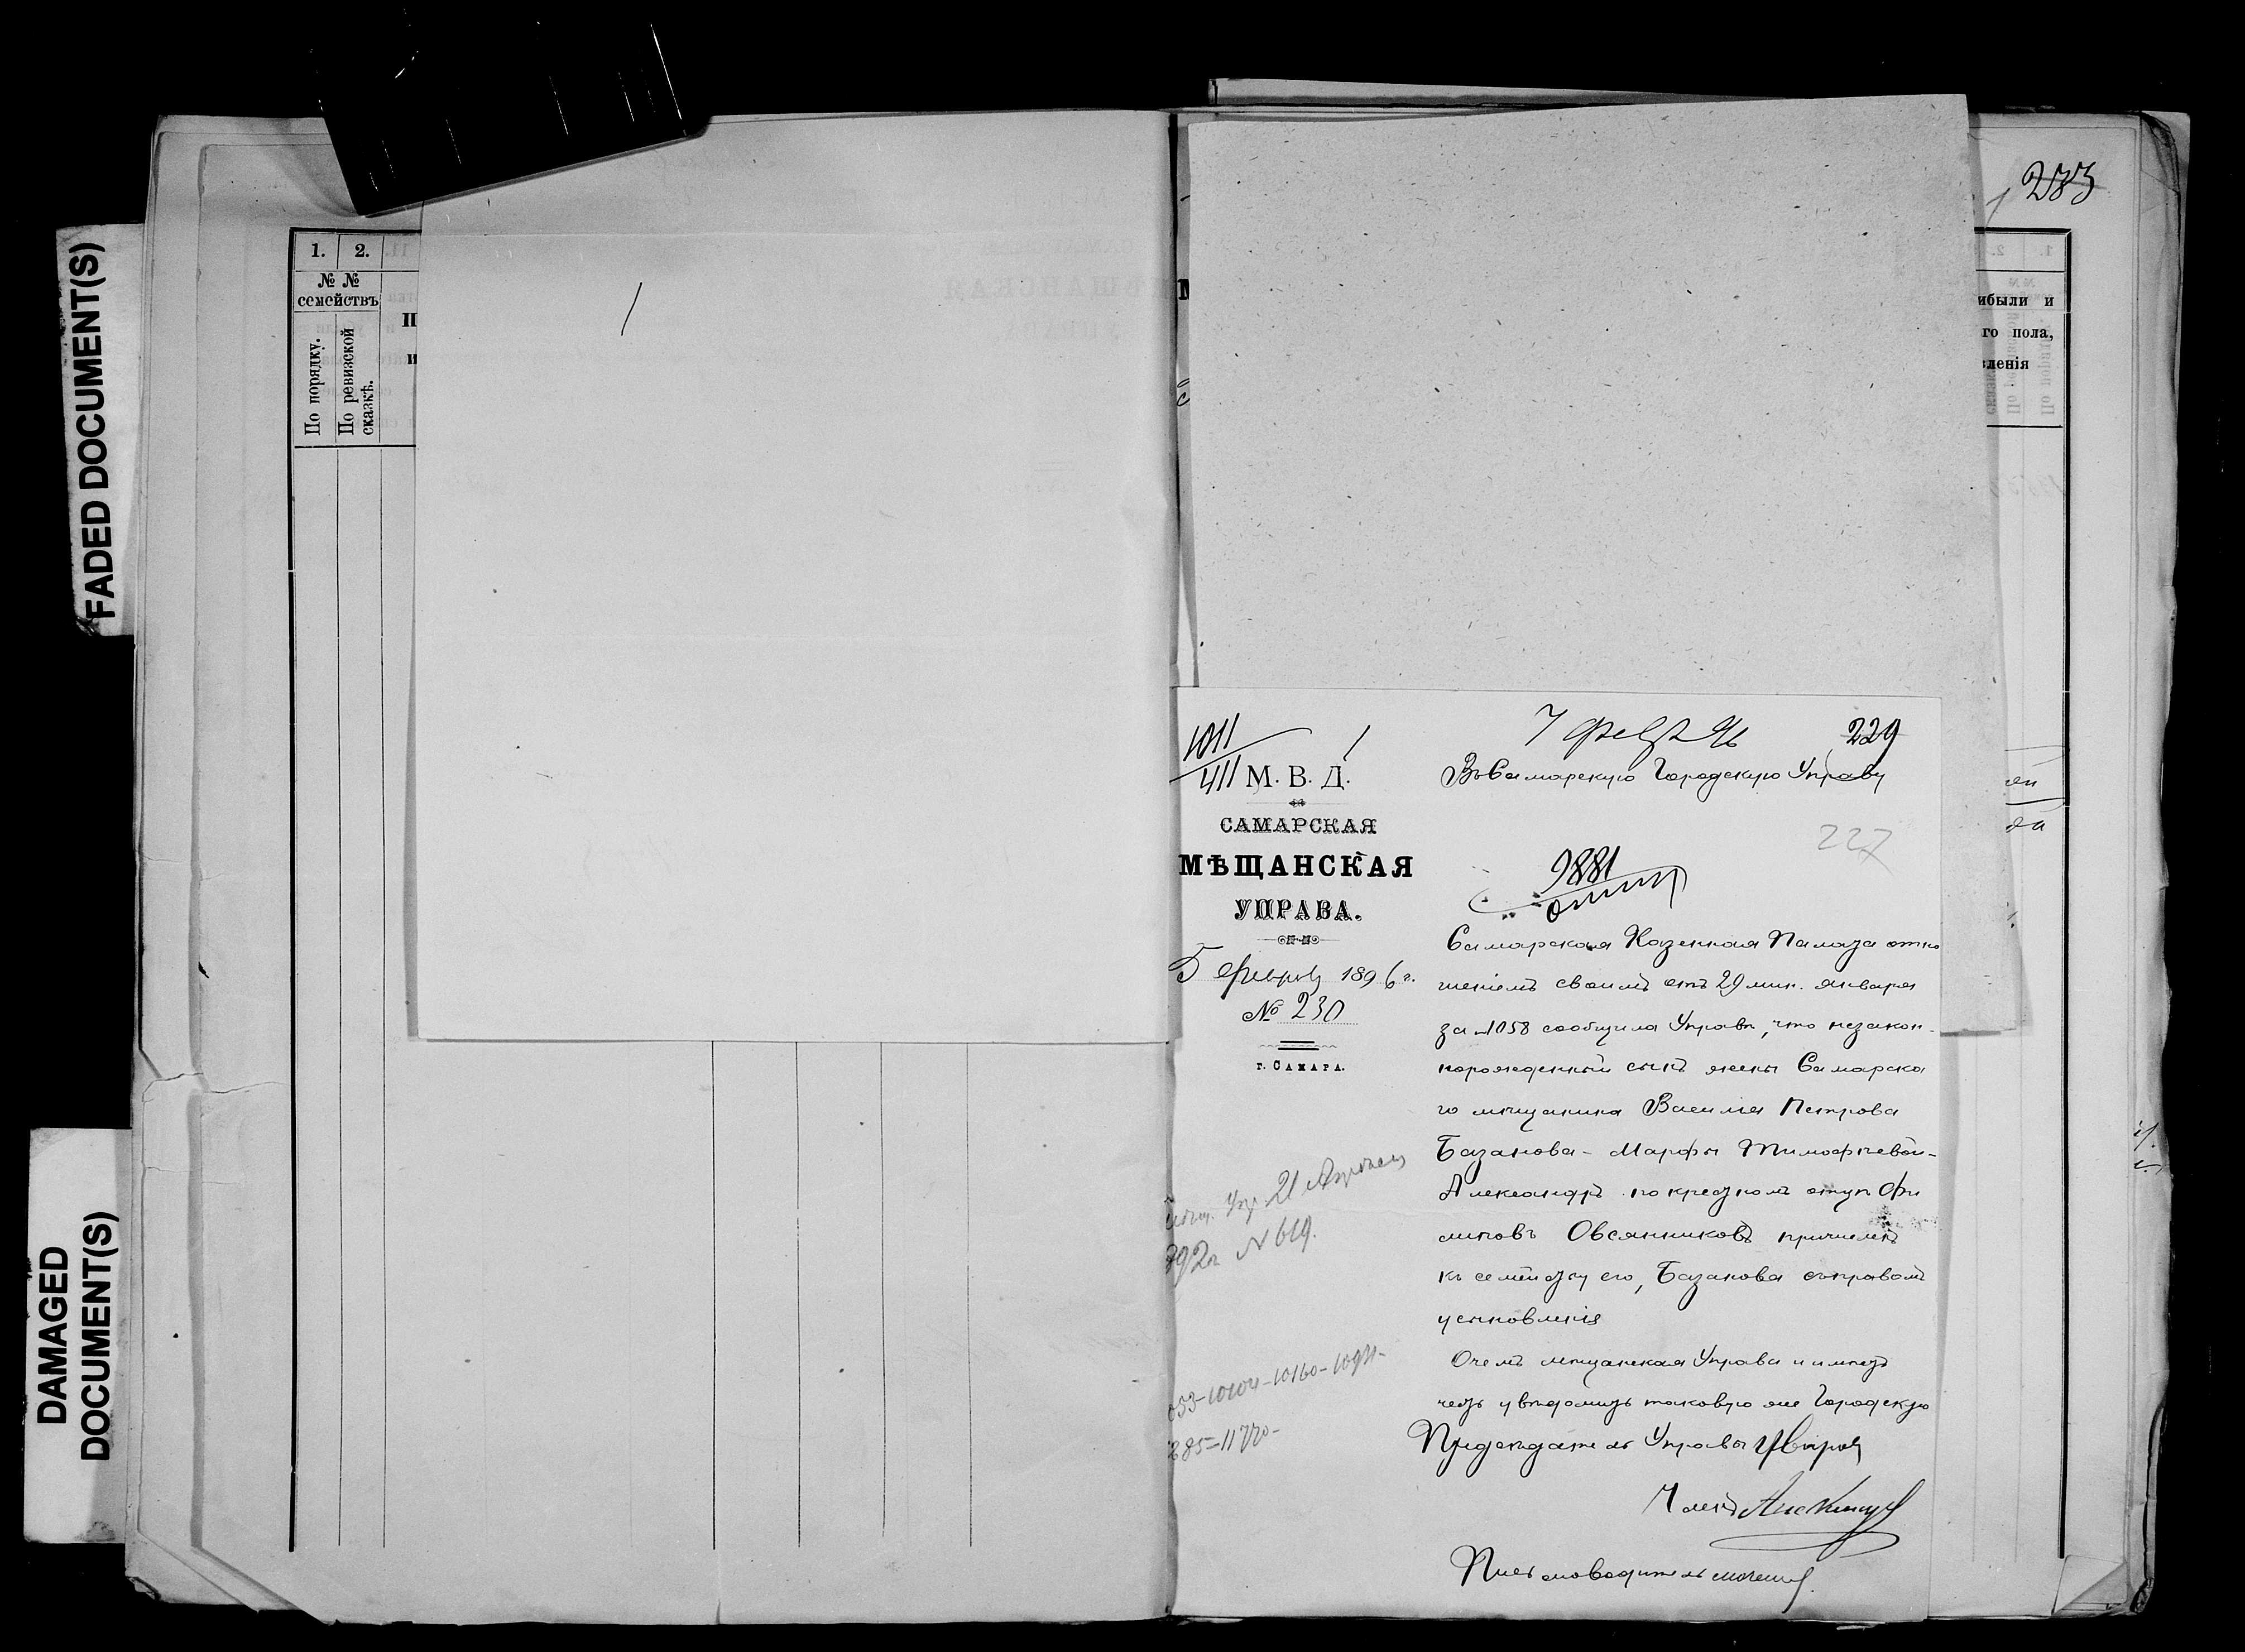 FADED DOCUMENT(S)
DAMAGED
DOCUMENT(S)
1. 2.
№ №
семействъ
По порядку.
По ревизской
сказкѣ.
283
ибыли и
го пола,
ленія
1011
411
М. В. Д.
САМАРСКАЯ
МѢЩАНСКАЯ
УПРАВА.
5 1896 г.
№ 230
г. САМАРА.
7 февр 96
229
Въ Самарскую Городскую Управу
227
9881
Самарская Казенная Палата отно
шеніемъ своимъ отъ 29 мин. января
за №1058 сообщила Управѣ, что незакон-
норожденный сынъ жены Самарска
го мѣщанина Василія Петрова
Базанова - Марфы Тимофѣевой -
Александръ по крестномъ отцѣ Фи
липовъ Овсянниковъ причисленъ
къ семейству его, Базанова съ правомъ
усыновленія
О чемъ мѣщанская Управа и имѣетъ
честь увѣдомить таковую же Городскую
Предсѣдатель Управы
Членъ
Письмоводитель
21
92 г № 619.
053-10104-10160-1094-
285-11770-